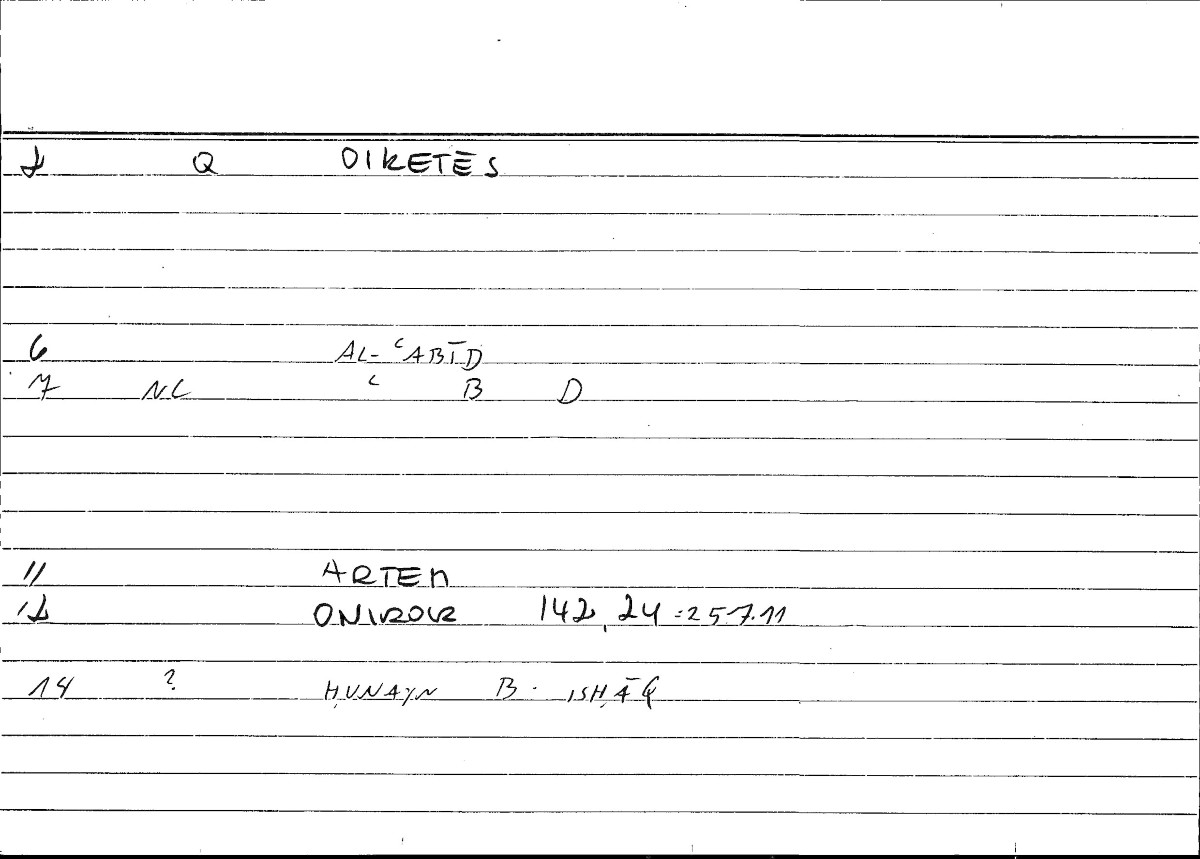 2 Q OIKETĒS
6 AL-ʿABĪD
7 NC ʿ B D
11 ARTEM
12 ONIROK 142,24=257.11
14 ? ḤUNAYN B. ISḤĀQ